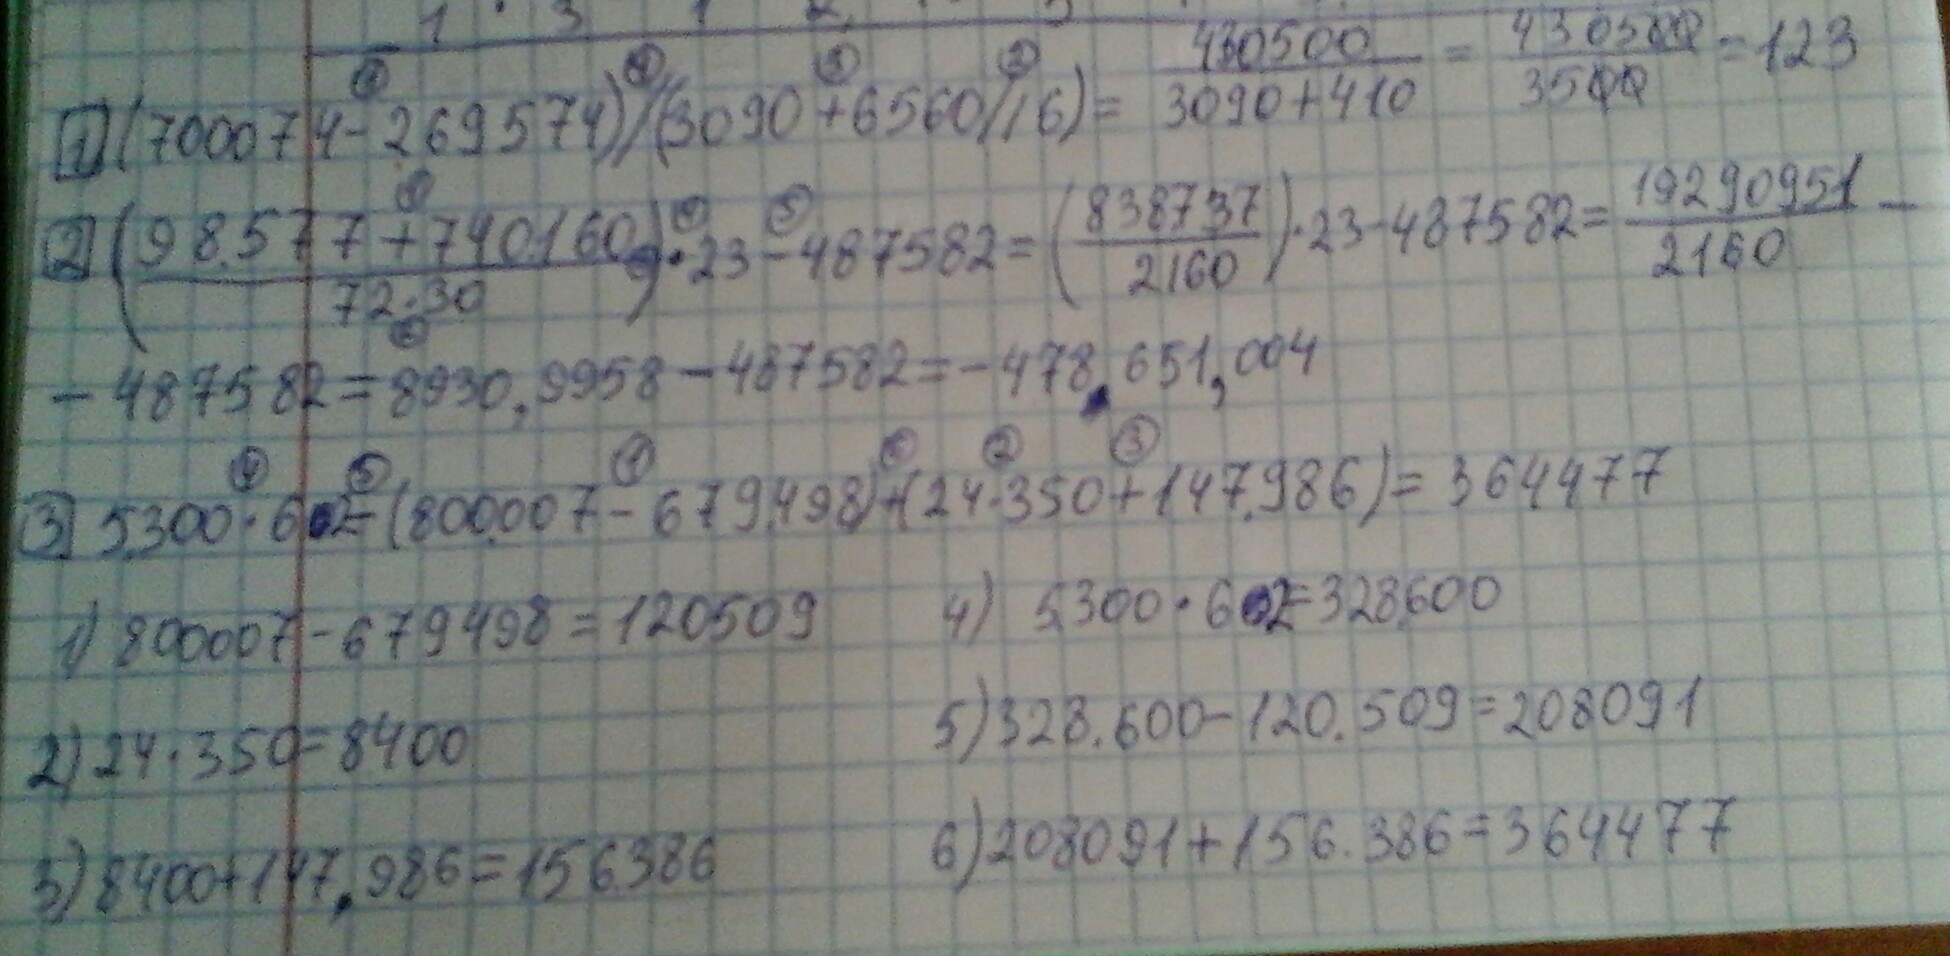 1 3 1 2
1) (700074-269574)/(3090+6560/16)= 430500/3090+410 = 430500/3500 = 123
2) (98.577+740.160/72·30)·23-487582=(838737/2160)·23-487582=19290951/2160 -
- 487582=8930,9958-487582=-478.651,004
3) 5.300·602-(800.007-679.498)+(24·350+147.986)=364477
1) 800007-679498=120509 4) 5.300·602=328.600
2) 24·350=8400 5) 328.600-120.509=208091
3) 8400+147.986=156386 6) 208091+156.386=364477